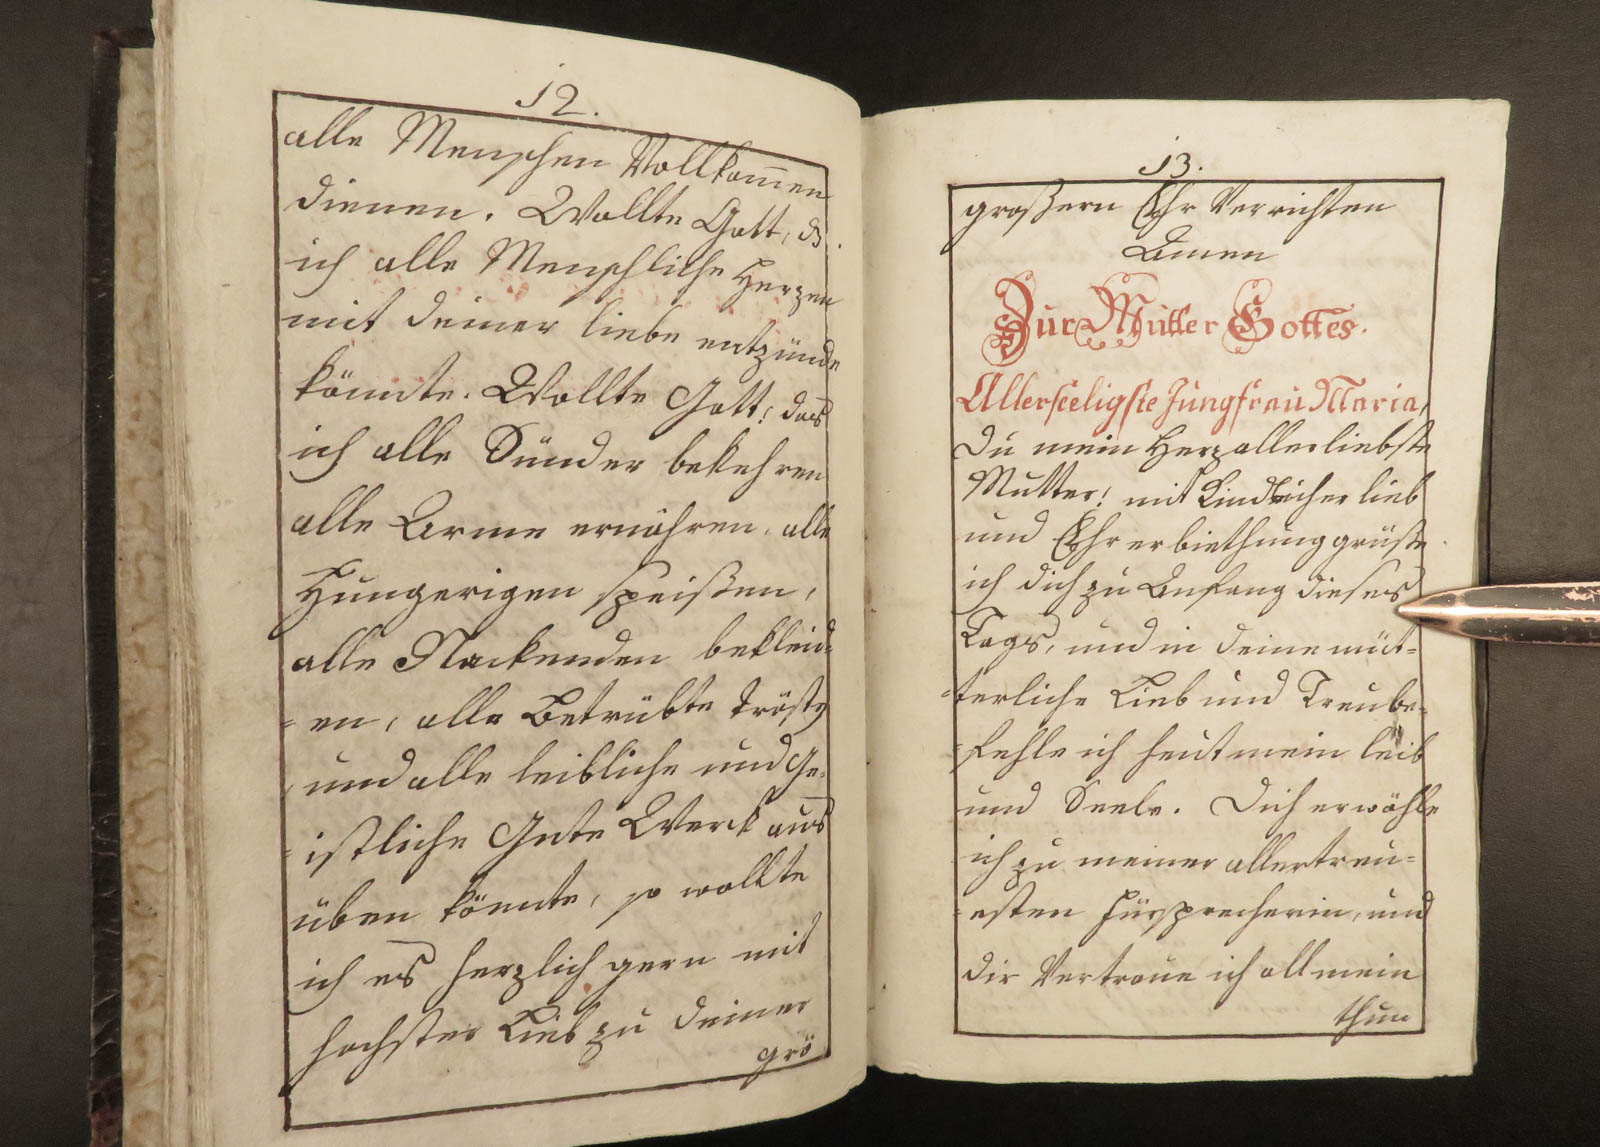 12.
alle Menschen Vollkom̅en
dienen. Wollte Gott, ds
ich alle Menschliche Herzen
mit deiner liebe entzünde
könnte. Wollte Gott! das
ich alle Sünder bekehren
alle Arme ernähren, alle
Hungerigen speißen,
alle Nackenden bekleid=
=en, alle Betrübte tröste
und alle leibliche und Ge=
=istliche Gute Werck aus
üben könnte, so wollte
ich es herzlich gern mit
hochster Lieb zu deiner
grö
13.
großern Ehr Verrichten
Amen
Zur Mutter Gottes.
Allerseeligste Jungfrau Maria,
Du mein Herzallerliebste
Mutter! mit Kindlicher lieb
und Ehrerbiethung grüße
ich dich zu Anfang dieses
Tags, und in deine müt=
=terliche Lieb und Treu be=
=fehle ich heut mein leib
und Seele. Dich erwähle
ich zu meiner allertreu=
=esten Fürsprecherin, und
dir Vertraue ich all mein
thun